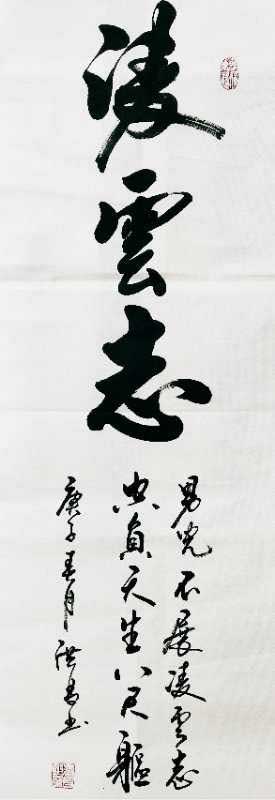 凌雲志
男兒不展凌雲志
空負天生八尺軀
庚子春月
洪昌书